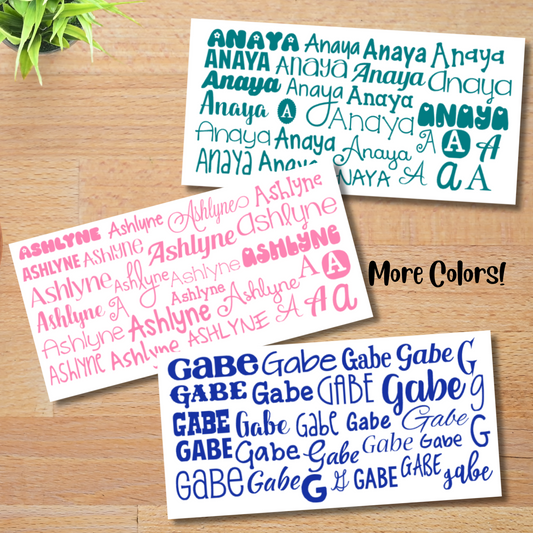 ANAYA Anaya Anaya Anaya
ANAYA Anaya Anaya Anaya
Anaya Anaya Anaya ANAYA
Anaya A Anaya A A A
Anaya Anaya Anaya
ANAYA Anaya ANAYA A a A
ASHLYNE Ashlyne Ashlyne Ashlyne
ASHLYNE Ashlyne Ashlyne Ashlyne
Ashlyne Ashlyne Ashlyne ASHLYNE
Ashlyne A Ashlyne A A
Ashlyne Ashlyne Ashlyne A A a
ASHLYNE Ashlyne ASHLYNE
More Colors!
Gabe Gabe Gabe Gabe G
GABE Gabe GABE Gabe g
GABE Gabe Gabe Gabe Gabe G
GABE Gabe Gabe Gabe Gabe
GABE Gabe G G GABE GABE gabe